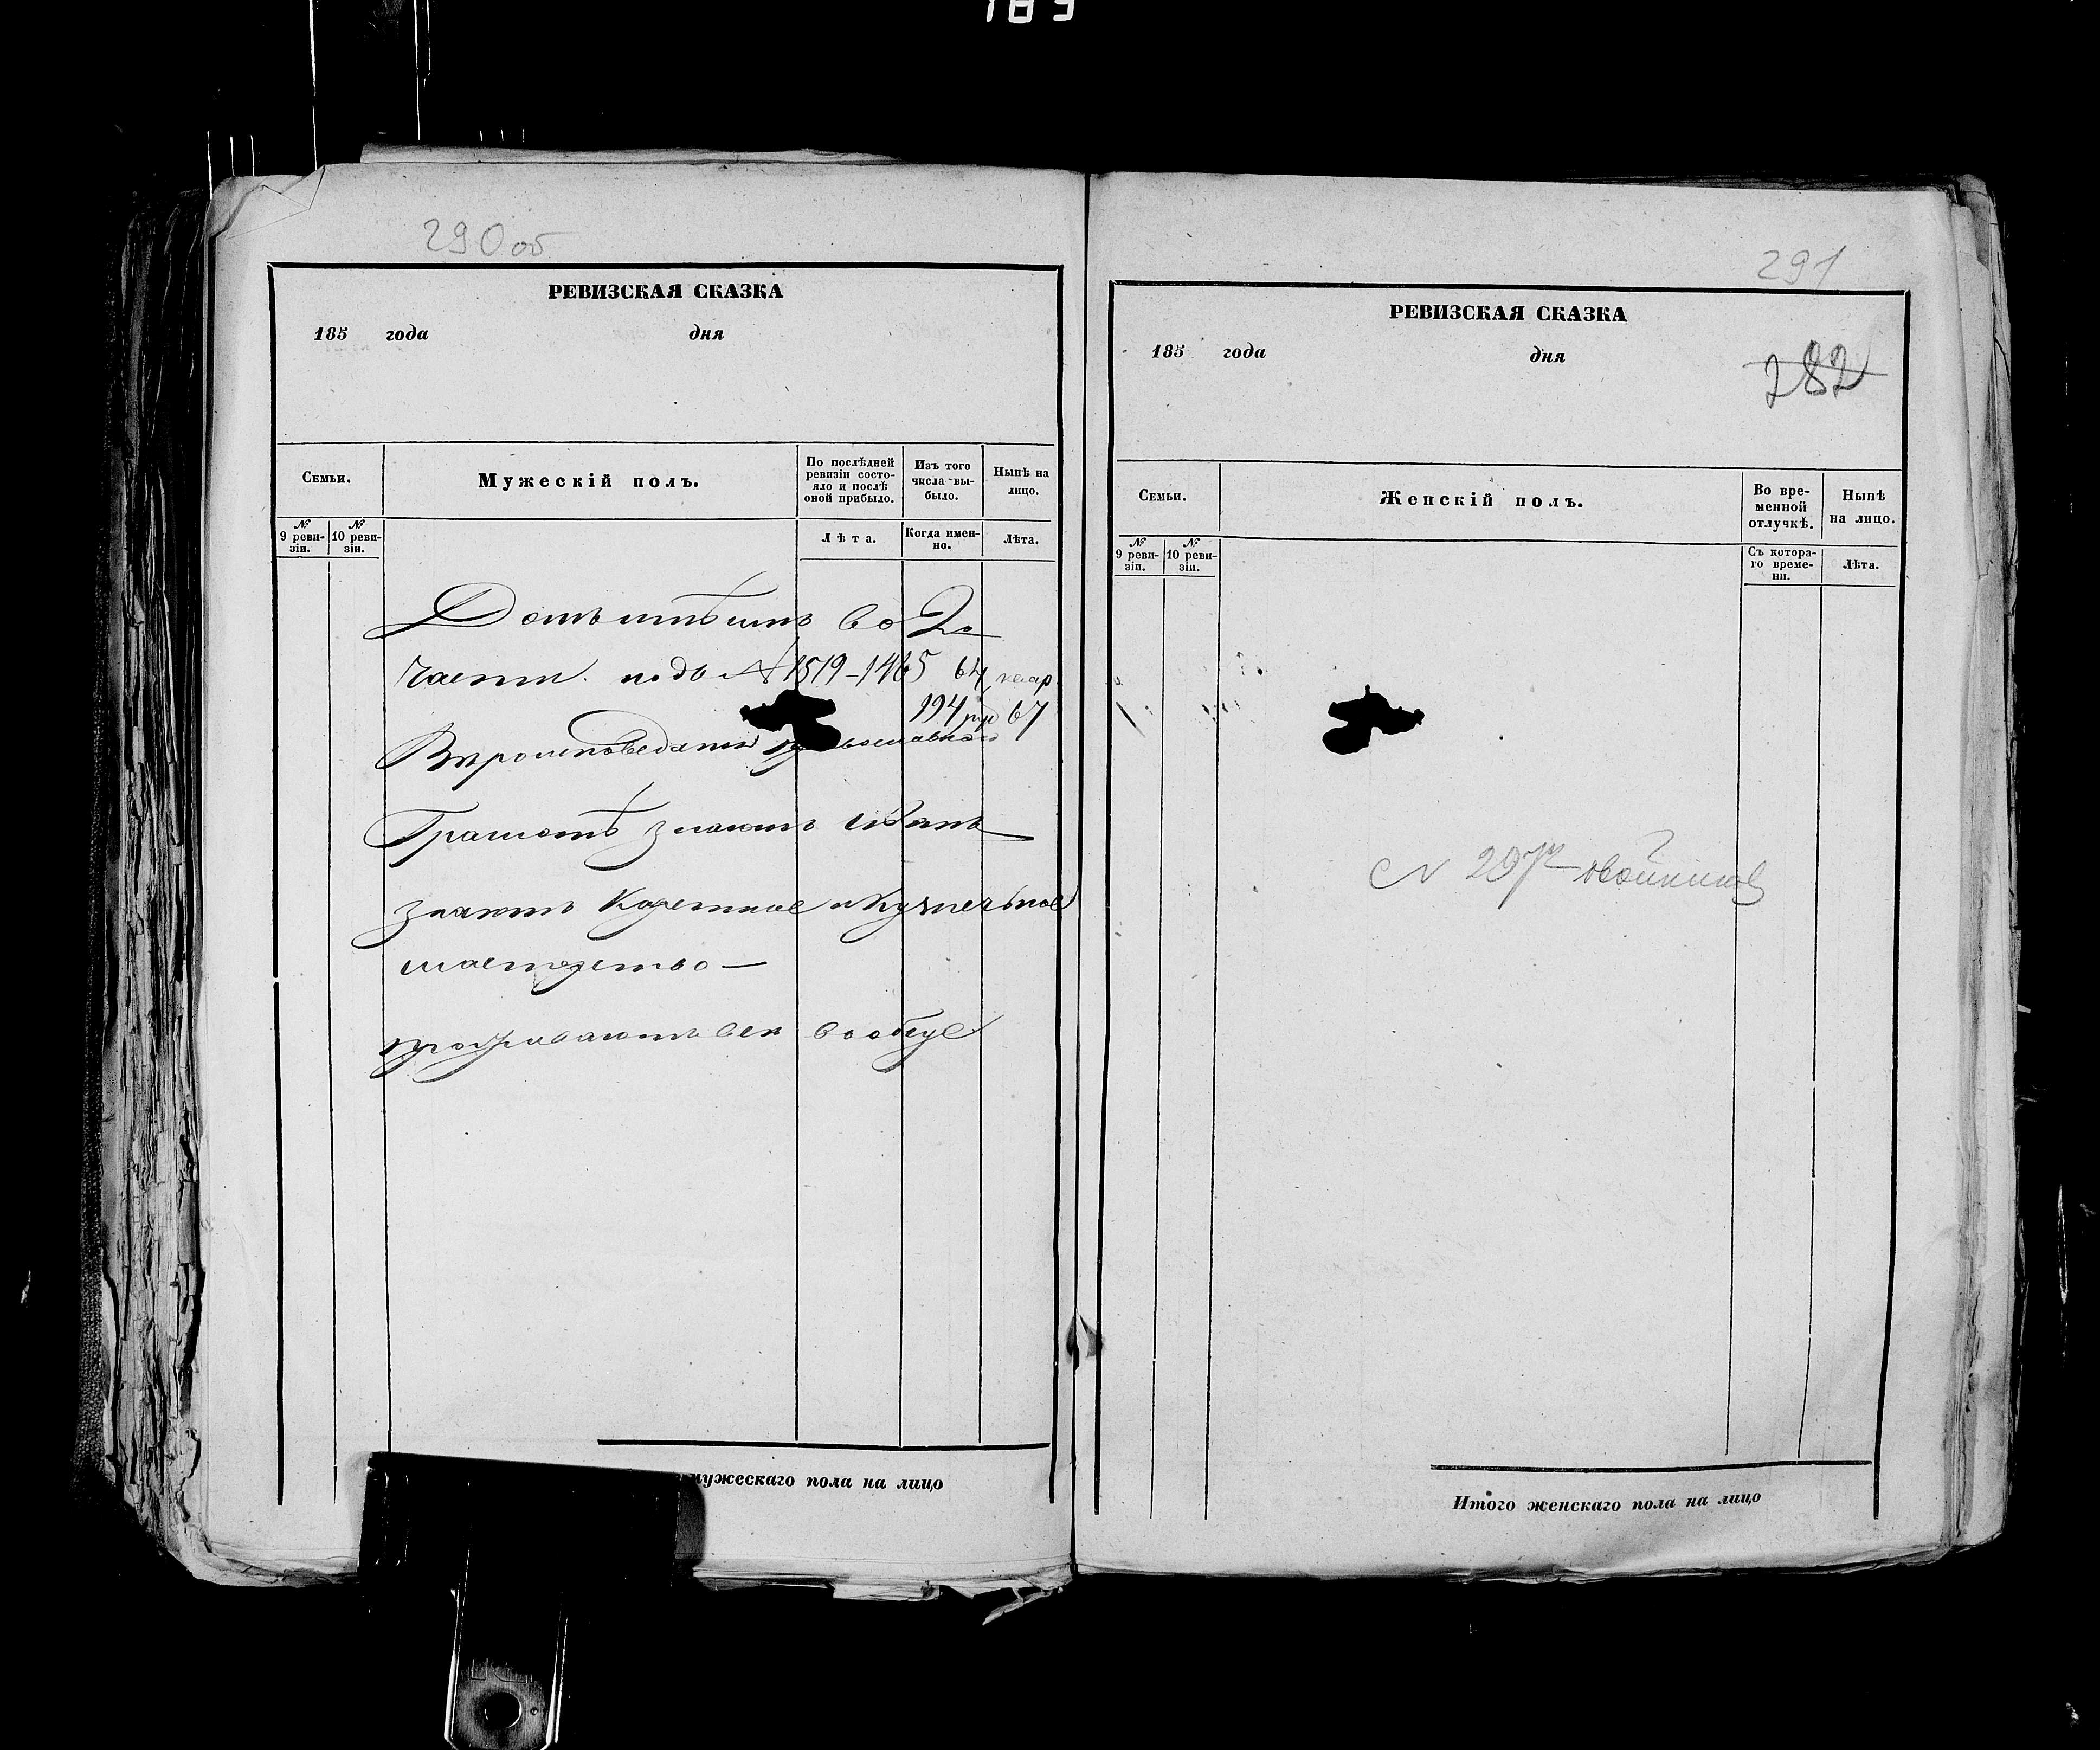 185
290 об
РЕВИЗСКАЯ СКАЗКА
185 года дня
Семьи.
Мужескій полъ.
По послѣдней ревизіи состояло и послѣ оной прибыло.
Изъ того числа выбыло.
Нынѣ на лицо.
№ 9 ревизіи.
№ 10 ревизіи.
Лѣта.
Когда именно.
Лѣта.
Домъ имѣютъ во 2й
части подъ № 1519-1465 64 квар.
194 руб 67
Вѣроисповеданія православнаго
Грамотѣ знаютъ
знаютъ Каретное и Кузнечьное
мастерство —
проживаютъ все вообще
мужескаго пола на лицо
291
РЕВИЗСКАЯ СКАЗКА
185 года дня
282
Семьи.
Женскій полъ.
Во временной отлучкѣ.
Нынѣ на лицо.
№ 9 ревизіи.
№ 10 ревизіи.
Съ котораго времени.
Лѣта.
№ 297
Итого женскаго пола на лицо